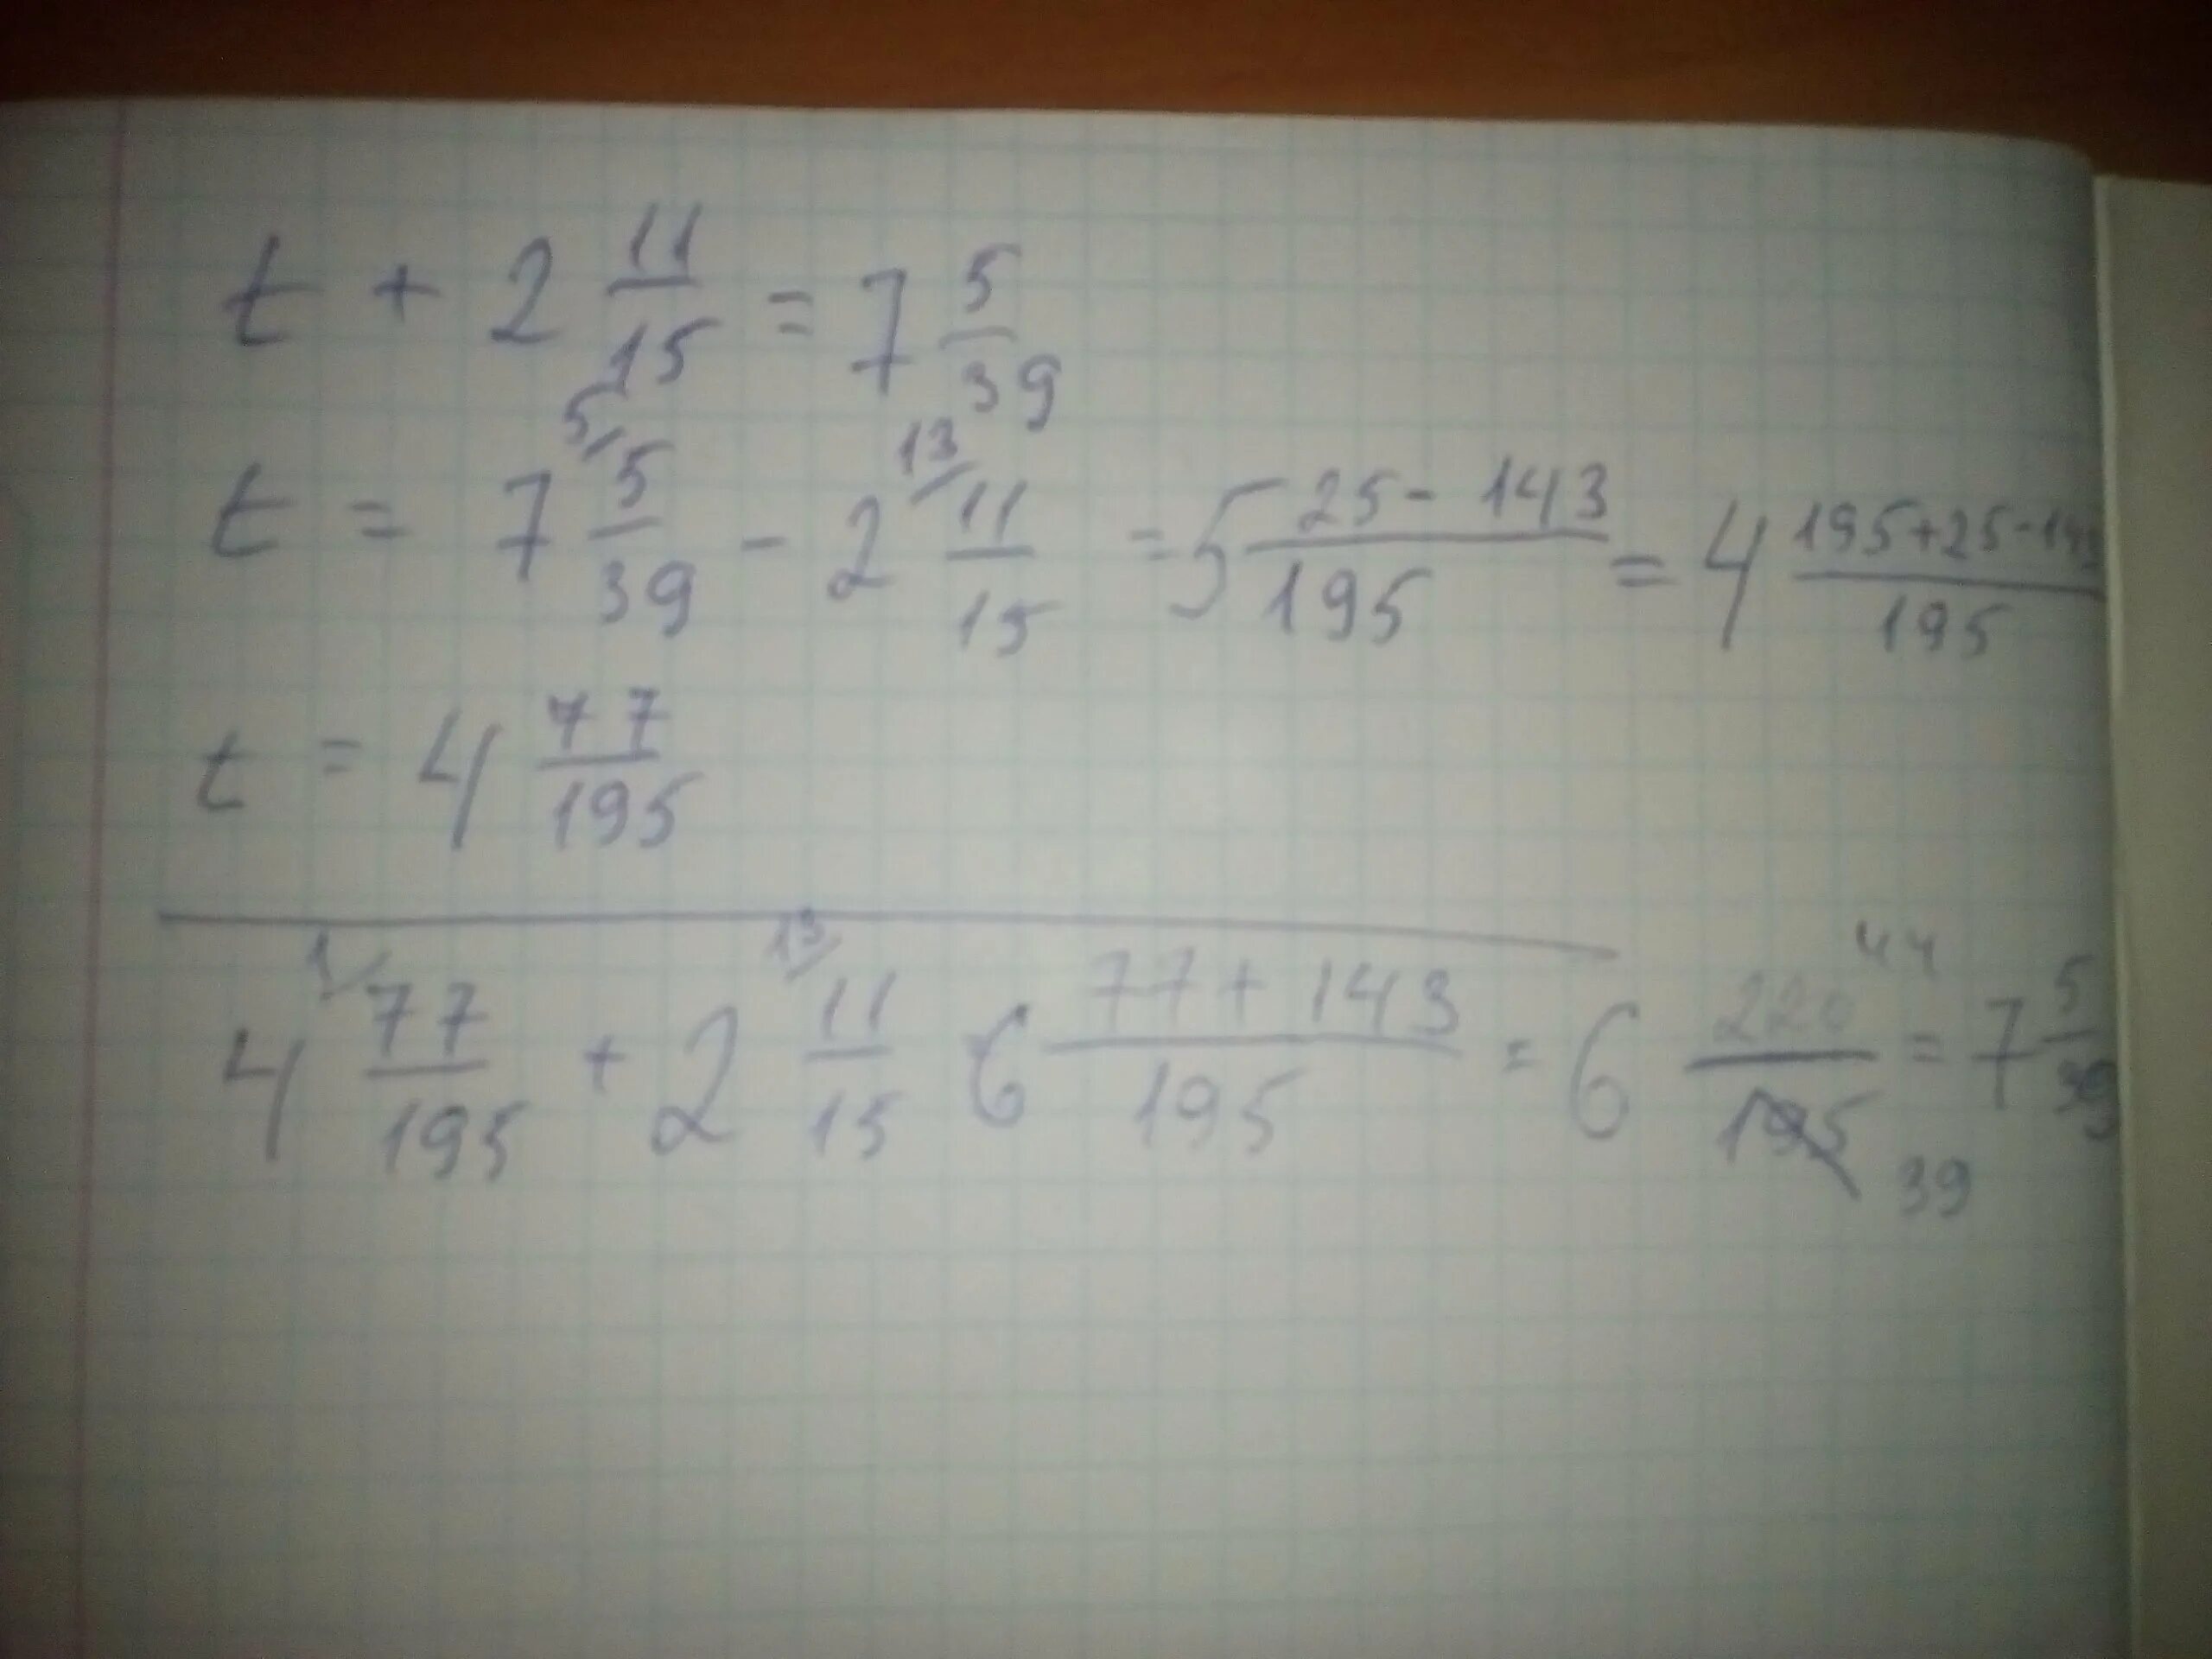 t + 2 11/15 = 7 5/39
t = 7 5/39 (5/) - 2 11/15 (13/) = 5 (25 - 143)/195 = 4 (195+25-143)/195
t = 4 77/195
4 77/195 (1/) + 2 11/15 (13/) 6 (77+143)/195 = 6 220/195 (44/39) = 7 5/39